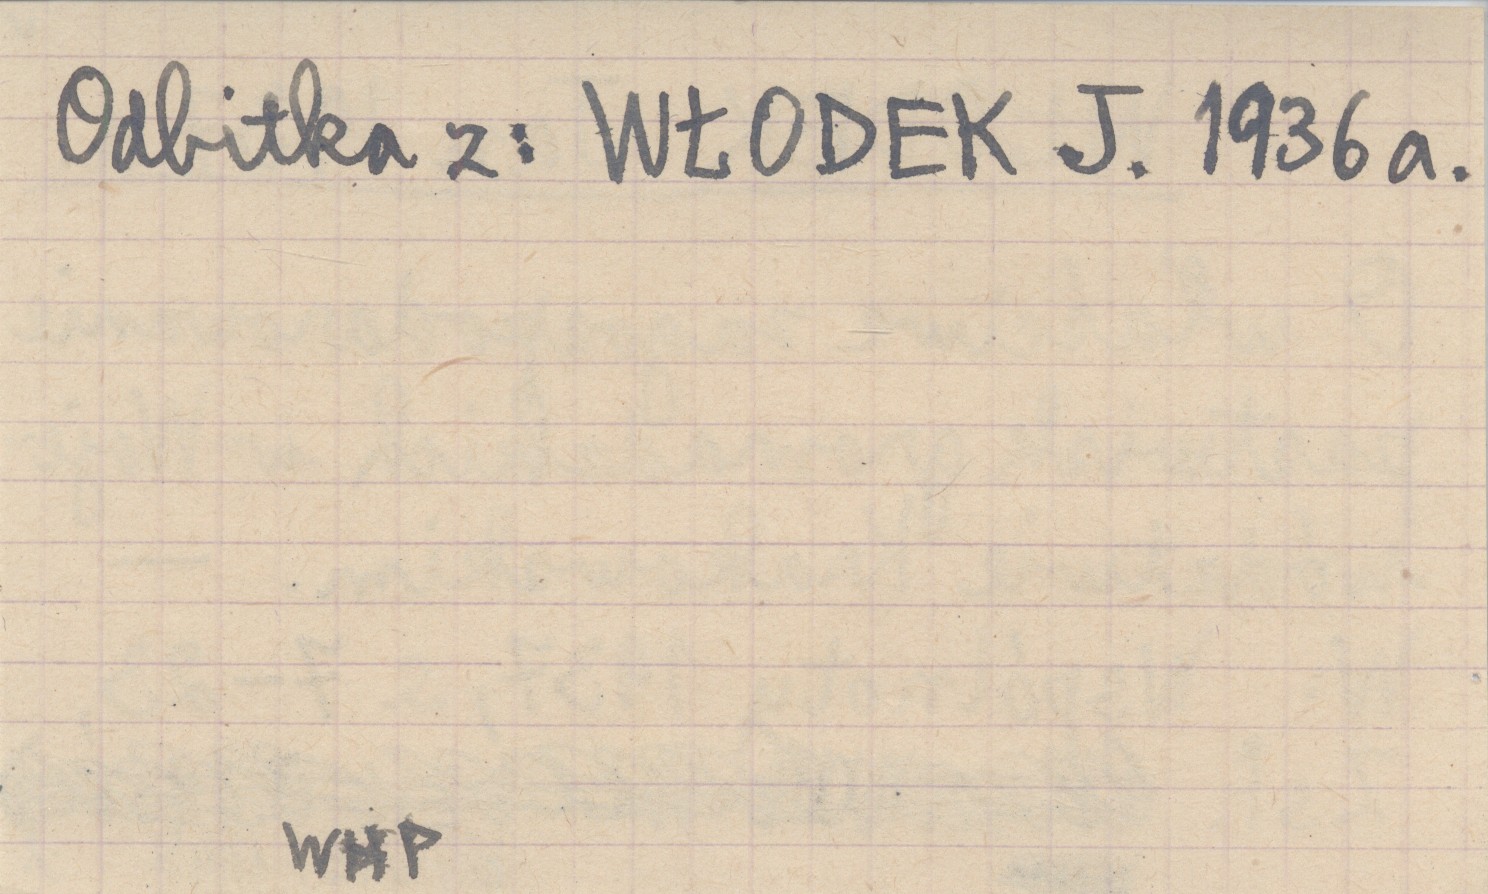 Odbitka z: WŁODEK J. 1936a.
WHP